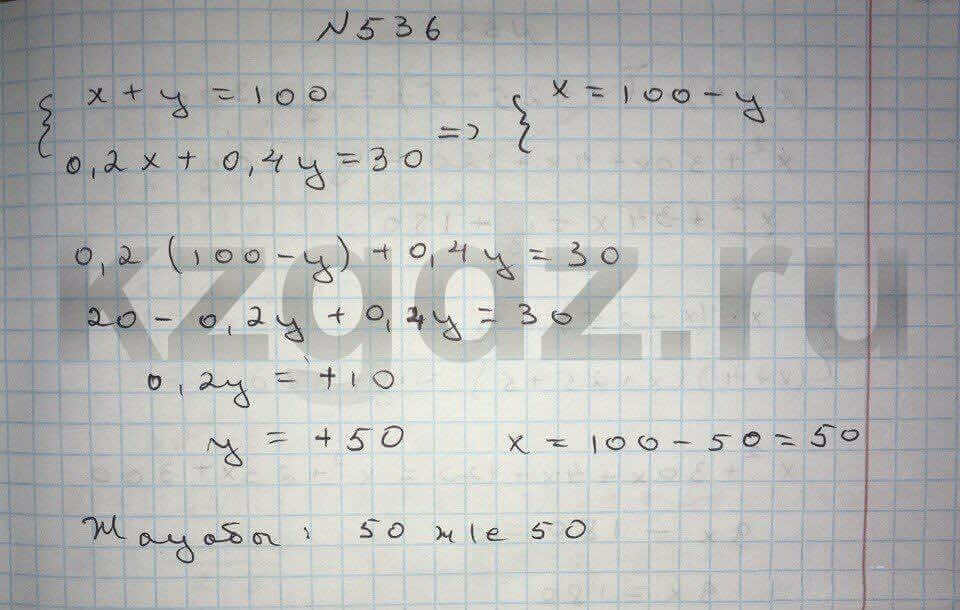 №536
{ x + y = 100
0,2x + 0,4y = 30 => { x = 100 - y
0,2 (100 - y) + 0,4y = 30
20 - 0,2y + 0,4y = 30
0,2y = +10
y = +50 x = 100 - 50 = 50
Жауабы: 50 және 50
kzgdz.ru